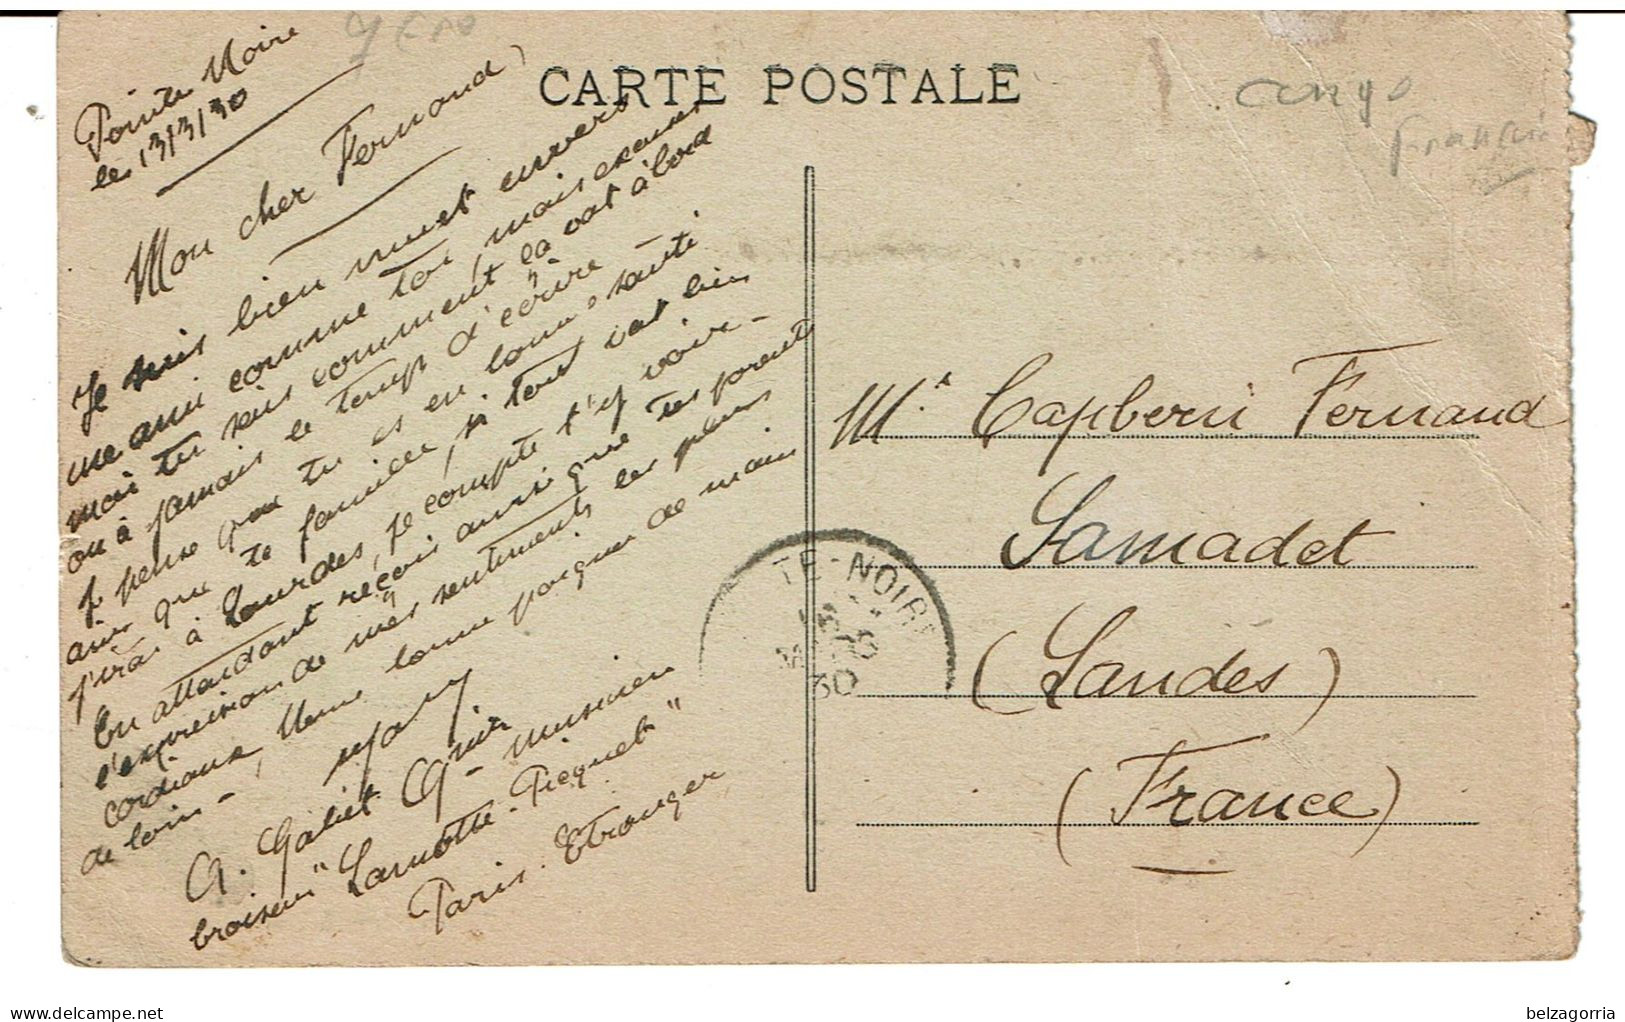 CARTE POSTALE
Congo
Français
Pointe Noire
le 13/3/30
Mon cher Fernand,
Je suis bien muet envers
une ami comme toi, mais excuses
moi tu sais comment ça vat à bord
on à jamais le temps d'écrire -
Je pense que tu es en bonne santé
ainsi que te famille, si tout vat bien
j'irai à Lourdes, je compte t'y voire -
En attendant reçois ainsi que tes parents
l'expression de mes sentiments les plus
cordiaux, Une bonne poignée de main
de loin -
A. Galiet
musicien
"Lamotte-Picquet"
Paris. Etranger
Mr Capberni Fernand
Samadet
(Landes)
(France)
TE-NOIR
30
belzagorria